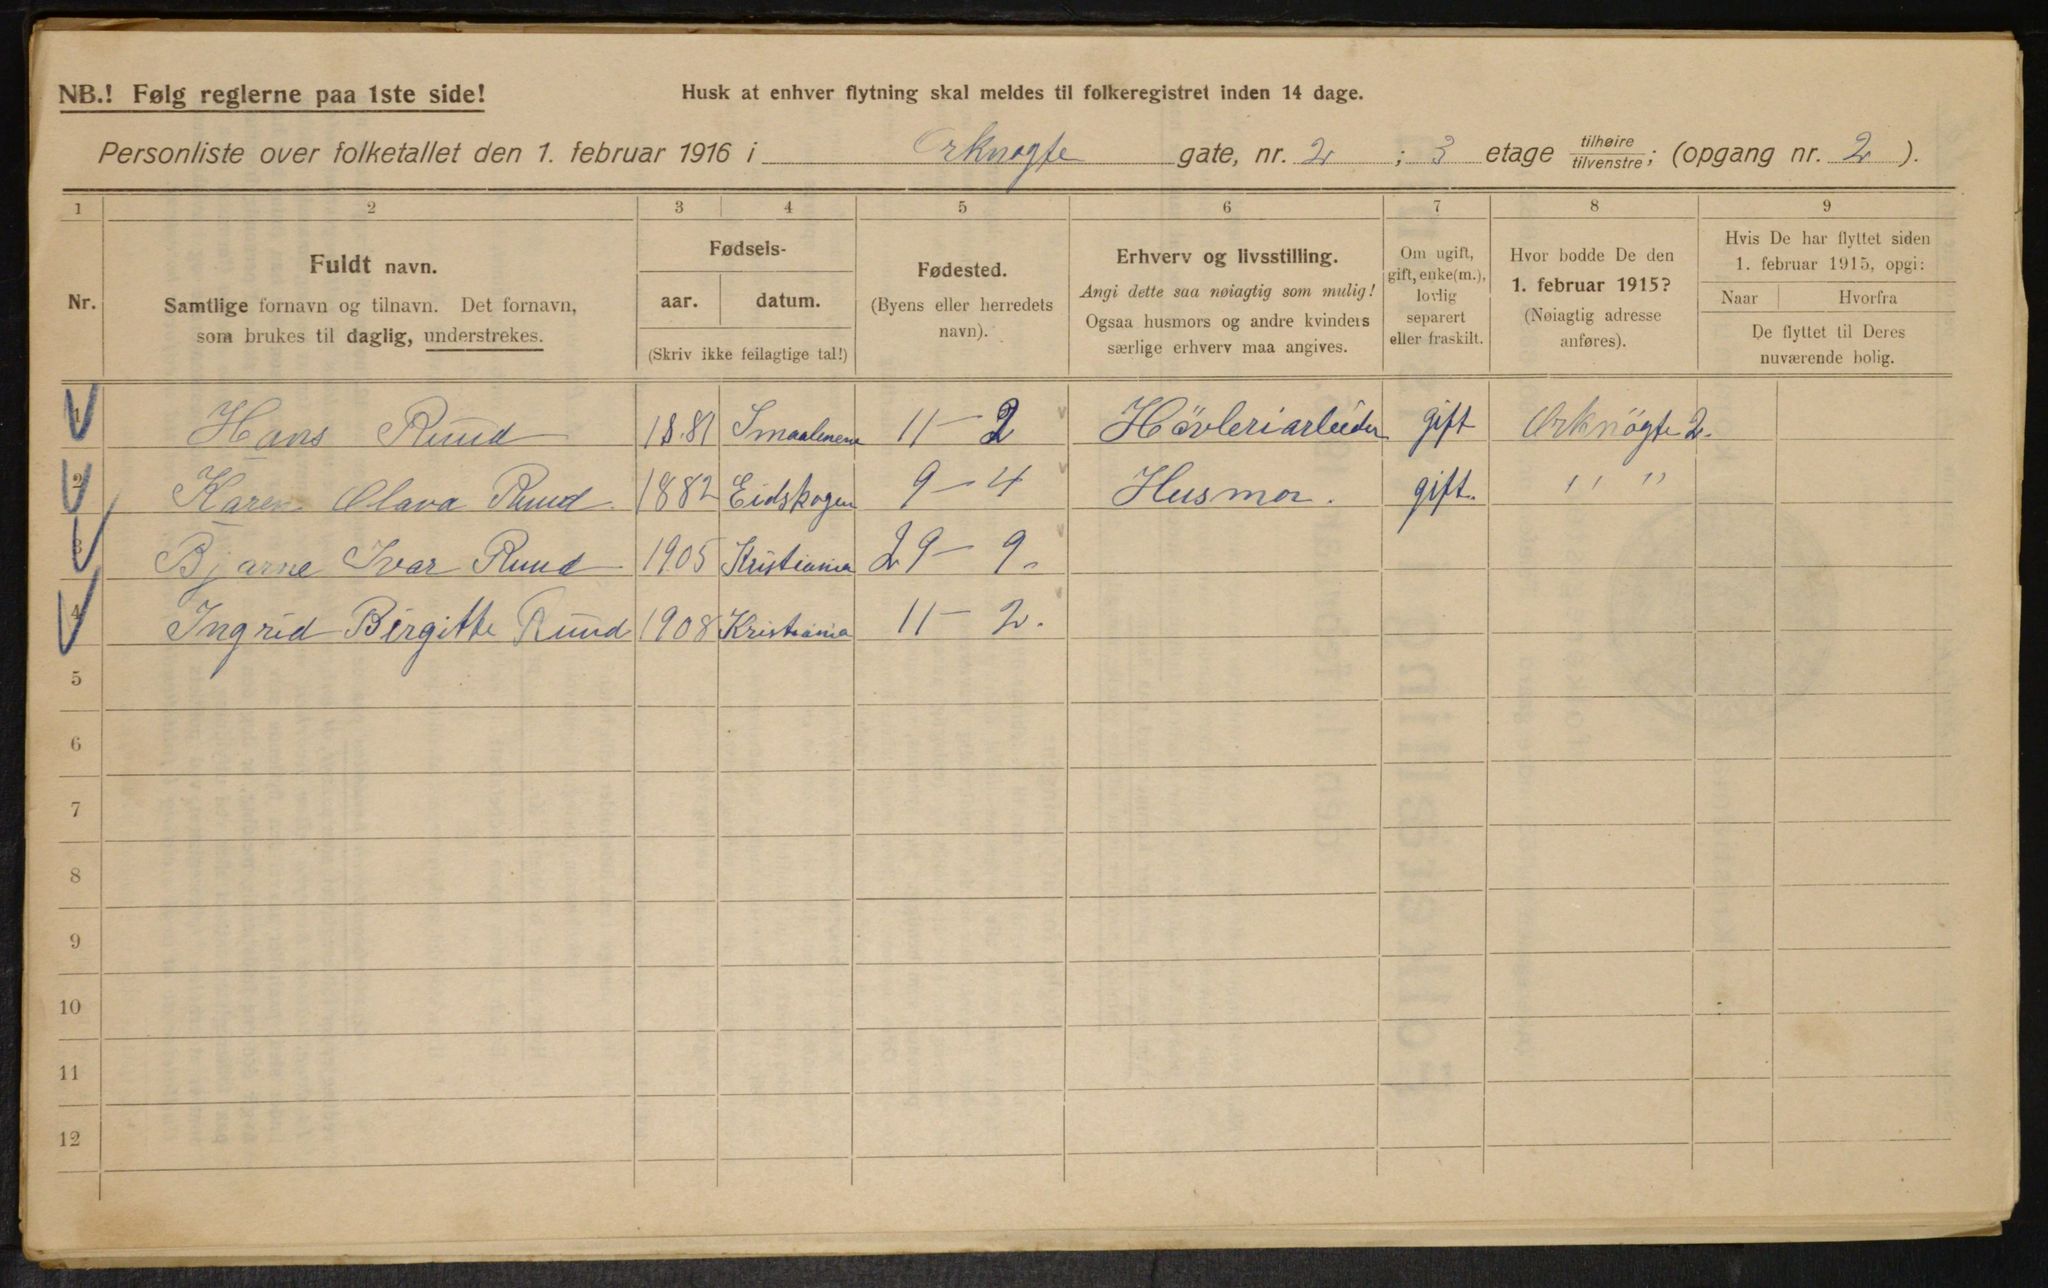 NB.! Følg reglerne paa 1ste side!
Husk at enhver flytning skal meldes til folkeregistret inden 14 dage.
Personliste over folketallet den 1. februar 1916 i Orknøgte gate, nr. 2 ; 3 etage tilhøire/tilvenstre; (opgang nr. 2 ).
1 2 3 4 5 6 7 8 9
Nr.
Fuldt navn.
Samtlige fornavn og tilnavn. Det fornavn,
som brukes til daglig, understrekes.
Fødsels-
aar. datum.
(Skriv ikke feilagtige tal!)
Fødested.
(Byens eller herredets
navn).
Erhverv og livsstilling.
Angi dette saa nøiagtig som mulig!
Ogsaa husmors og andre kvinders
særlige erhverv maa angives.
Om ugift,
gift, enke(m.),
lovlig
separert
eller fraskilt.
Hvor bodde De den
1. februar 1915?
(Nøiagtig adresse
anføres).
Hvis De har flyttet siden
1. februar 1915, opgi:
Naar Hvorfra
De flyttet til Deres
nuværende bolig.
1 Hans Ruud 1881 Smaalenene 11-2 Hövleriarbeider gift Orknögte 2.
2 Karen Olava Ruud 1882 Eidskogen 9-4 Husmor. gift. " "
3 Bjarne Ivar Ruud 1905 Kristiania 29-9.
4 Ingrid Birgitte Ruud 1908 Kristiania 11-2.
5
6
7
8
9
10
11
12